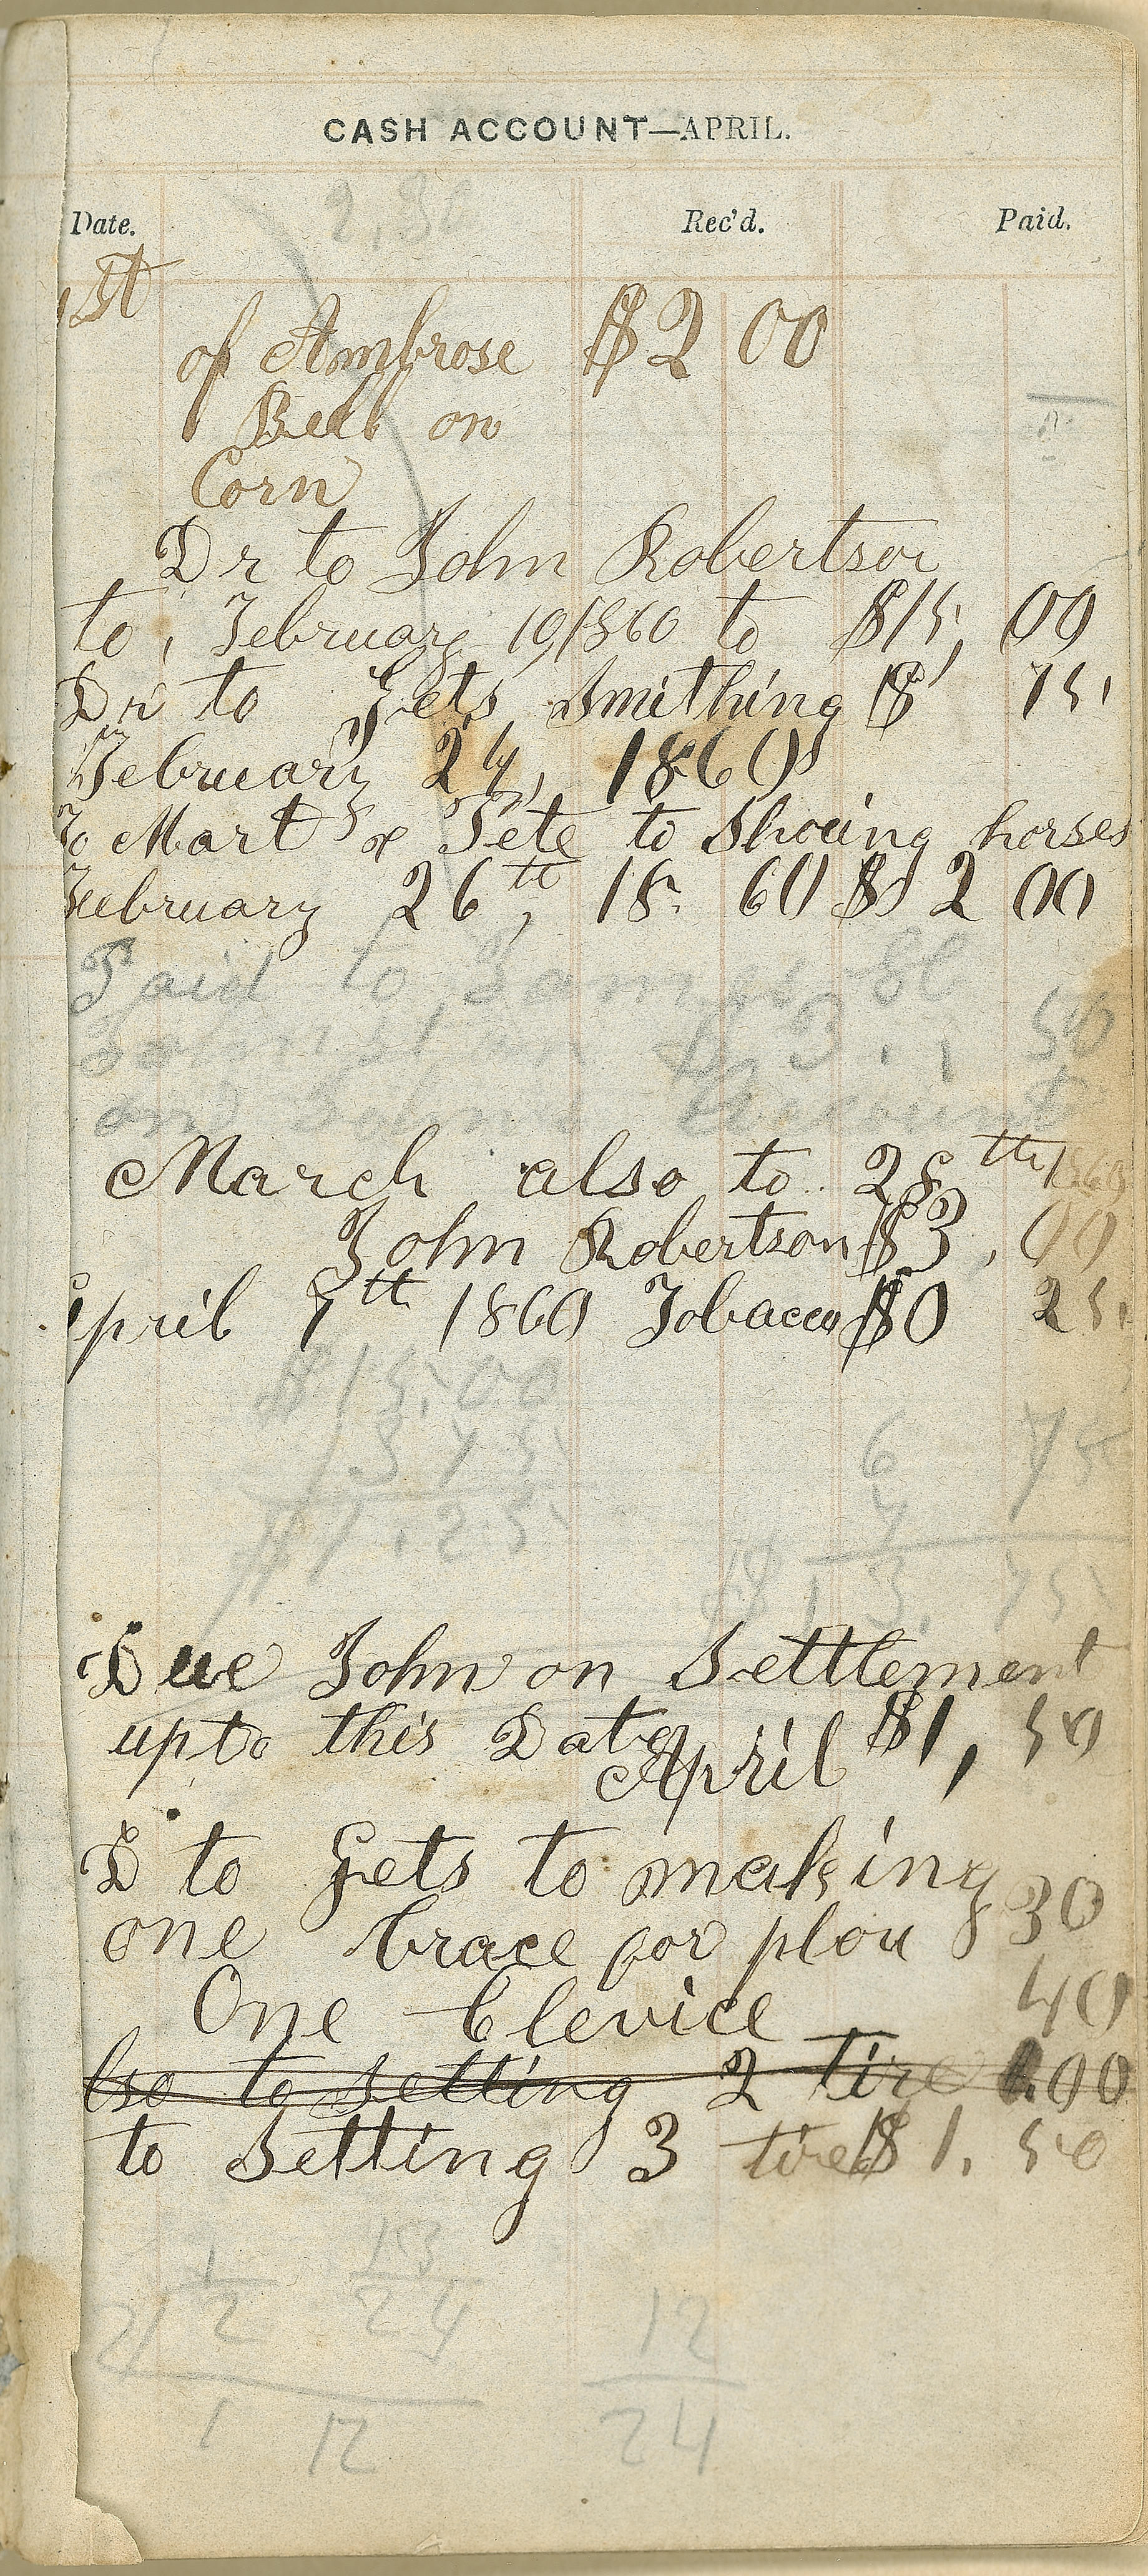 CASH ACCOUNT—APRIL.
Date. Rec'd. Paid.
1st
of Ambrose $2 00
Bell on
Corn
Dr to John Robertson
to, February 1860 to $15, 00
Dr to Gets Smithing $ 75
February 24, 1860
To Mart & Pete to Shoeing horses
February 26th, 18 60 $ 2 00
Paid to James
Johnston 50
and Account
March also to 28th 1860
John Robertson $3, 00
April 7th 1860 Tobacco $0 25
$15.00
3 75
6 75
11.25
$13. 75
Due John on Settlement
upto this Date $1, 50
April
D to Gets to making
one brace for plou $30
One Clevice 40
lso to setting 2 tire 00
to Setting 3 tires $1. 50
1 13
21 2 24
12
1 12
24